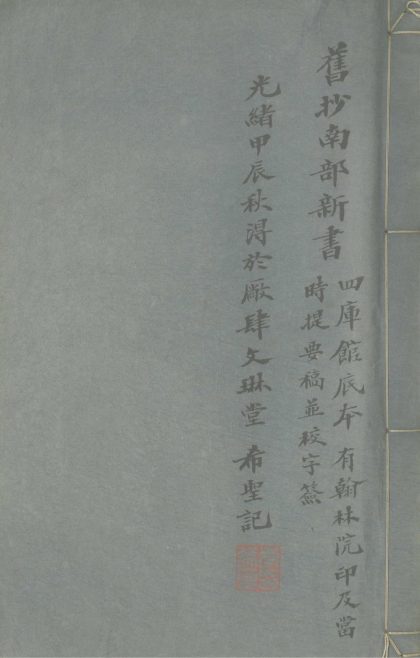 舊抄南部新書
四庫館底本 有翰林院印及當
時提要稿並校字簽
光緒甲辰秋淂於厰肆文琳堂 希聖記